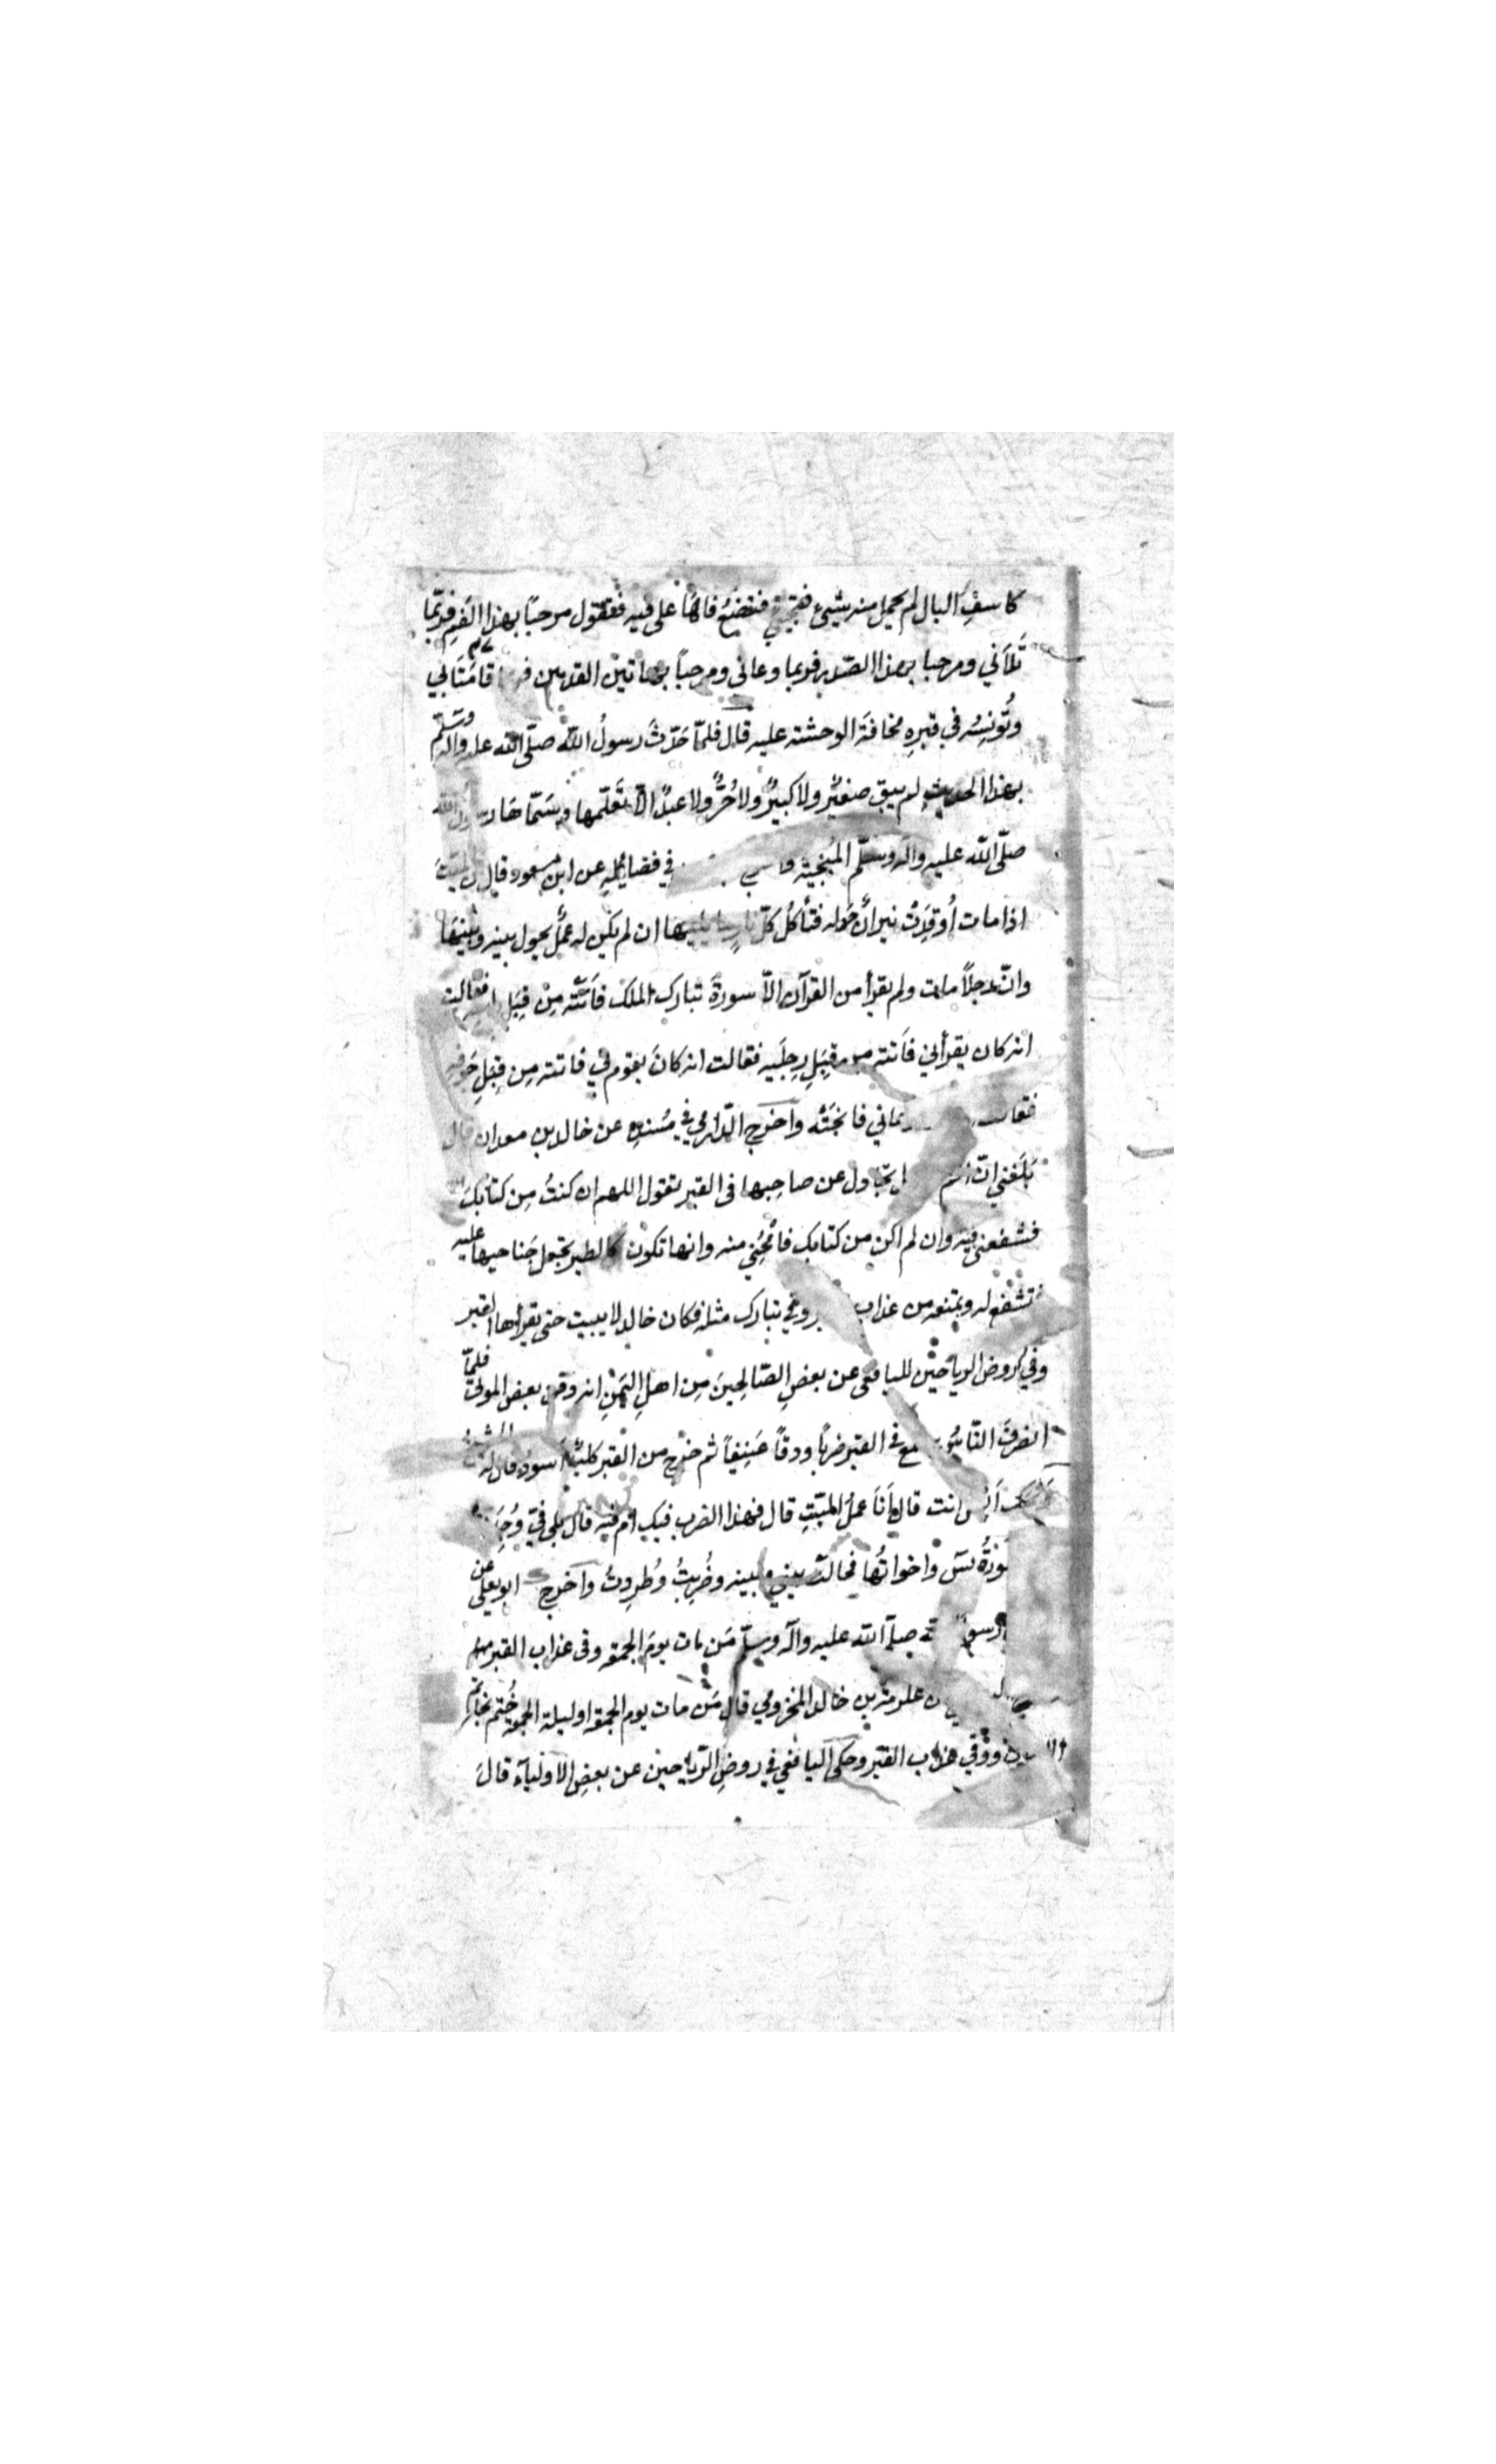 كاسفِ البال لم يحمل منه شيئ فتجيئ فتضعُ فاهَا على فيه فتقول مرحبًا بهذا الفم فربّما
تَلاَني ومرحبا بهذا الصّدر فربما وعانى ومرحباً بهاتين القدمين فـ قامَتَا بي
وتُونِسُه في قبرِه مخافَةَ الوحشة عليه قال فلمّا حَدّثَ رسولُ الله صلّى الله عليه واله وسلّم
بهذا الحديث لم يبق صغيرٌ ولا كبيرٌ ولا حُرٌّ ولا عبدٌ الاّ تَعَلّمها وسَمّاهَا رسولُ الله
صلّى الله عليه وآله وسلّم المُنجِية في فضايله عن ابن مسعود قال الميّتَ
اذا مات اُوقِدَتْ نيرانٌ حَوله فتأكُل كلّ نارٍ ما يليها ان لم يكن له عملٌ يحول بينه وبَينَهَا
وانّ رجلاً مات ولم يقرأ من القرآن الاّ سورةَ تبارك الملك فاَتَتْه مِنْ قِبَلِ رأسه فقالت
انه كان يقرأني فاَتته من قِبَلِ رِجلَيه فقالت انه كانَ يقوم بي فاتته مِن قِبَلِ جَوفِه
فقالت وعاني فانجَتْه واَخرج الدّارمي في مُسنده عن خالد بن معدان قال
بَلَغني انّ تجادل عن صاحبها فى القبر تقول اللهم ان كنتُ مِن كتابِكَ
فشفعنى فيه وان لم اكن من كتابك فامْحُنِي منه وانها تكون كالطير تجعل جَناحيها عليه
فتَشْفَع له وتمنعه من عذاب القبر وفي تبارك مثله فكان خالد لا يبيت حتى يقرأها
وفي روض الرياحين لليافعى عن بعضِ الصّالِحينَ مِن اهلِ اليَمَنِ انه دفن بعض الموتىٰ فلمّا
انصَرفَ النّاسُ سمع في القبر ضربًا ودقاً عَنِيفاً ثم خرج من القبر كلبٌ اَسود فقال له الشيخُ
اَيش انت قال اَنَا عملُ الميّتِ قال فهذا الضرب فيك ام فيه قال بلى فيّ وُجِدَتْ
سُورَةُ يسٓ واخواتُها فحالَتْ بيني وبينه وضُرِبتُ وطُرِدتُ واَخرج ابو يعلى عن
رسول الله صلّى الله عليه وآله وسلّم مَن مات يومَ الجمعه وقى عذاب القبر
عن عكرمة بن خالد المخزومي قال مَن مات يوم الجمعه او ليلة الجمعه خُتم بخاتم
الايمان ووُقي عذاب القَبر وحكى اليافعي في روضِ الرّياحين عن بعضِ الاَولياَء قالَ